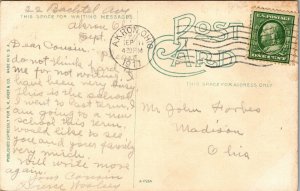 22 Bachtel Ave
THIS SPACE FOR WRITING MESSAGES
Akron O.
Sept.
Dear Cousin.
do not think hard of
me for not writing. I
have been very busy.
This is the school
I went to last term, I
am going to a new
school this term,
would like to see
you and your family
very much.
Will write more
again.
Your Cousin
POST
CARD
THIS SPACE FOR ADDRESS ONLY
AKRON, OHIO
SEP
1911
Mr John Forbes
Madison
Ohio
ONE CENT